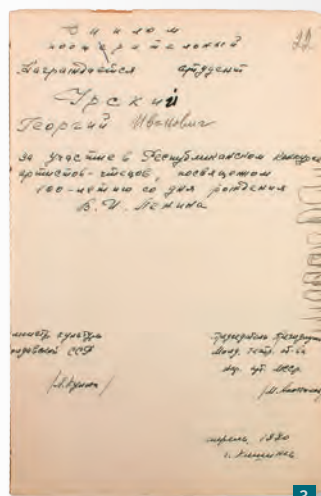 22
Диплом
поощрительный
Награждается студент
Урский
Георгий Иванович
за участие в Республиканском конкурсе
артистов-чтецов, посвященном
100-летию со дня рождения
В. И. Ленина
министр культуры
Молдавской ССР
Председатель Президиума
Молд. театр. об-ва
нар. арт. МССР
апрель 1970
г. Кишинев
3